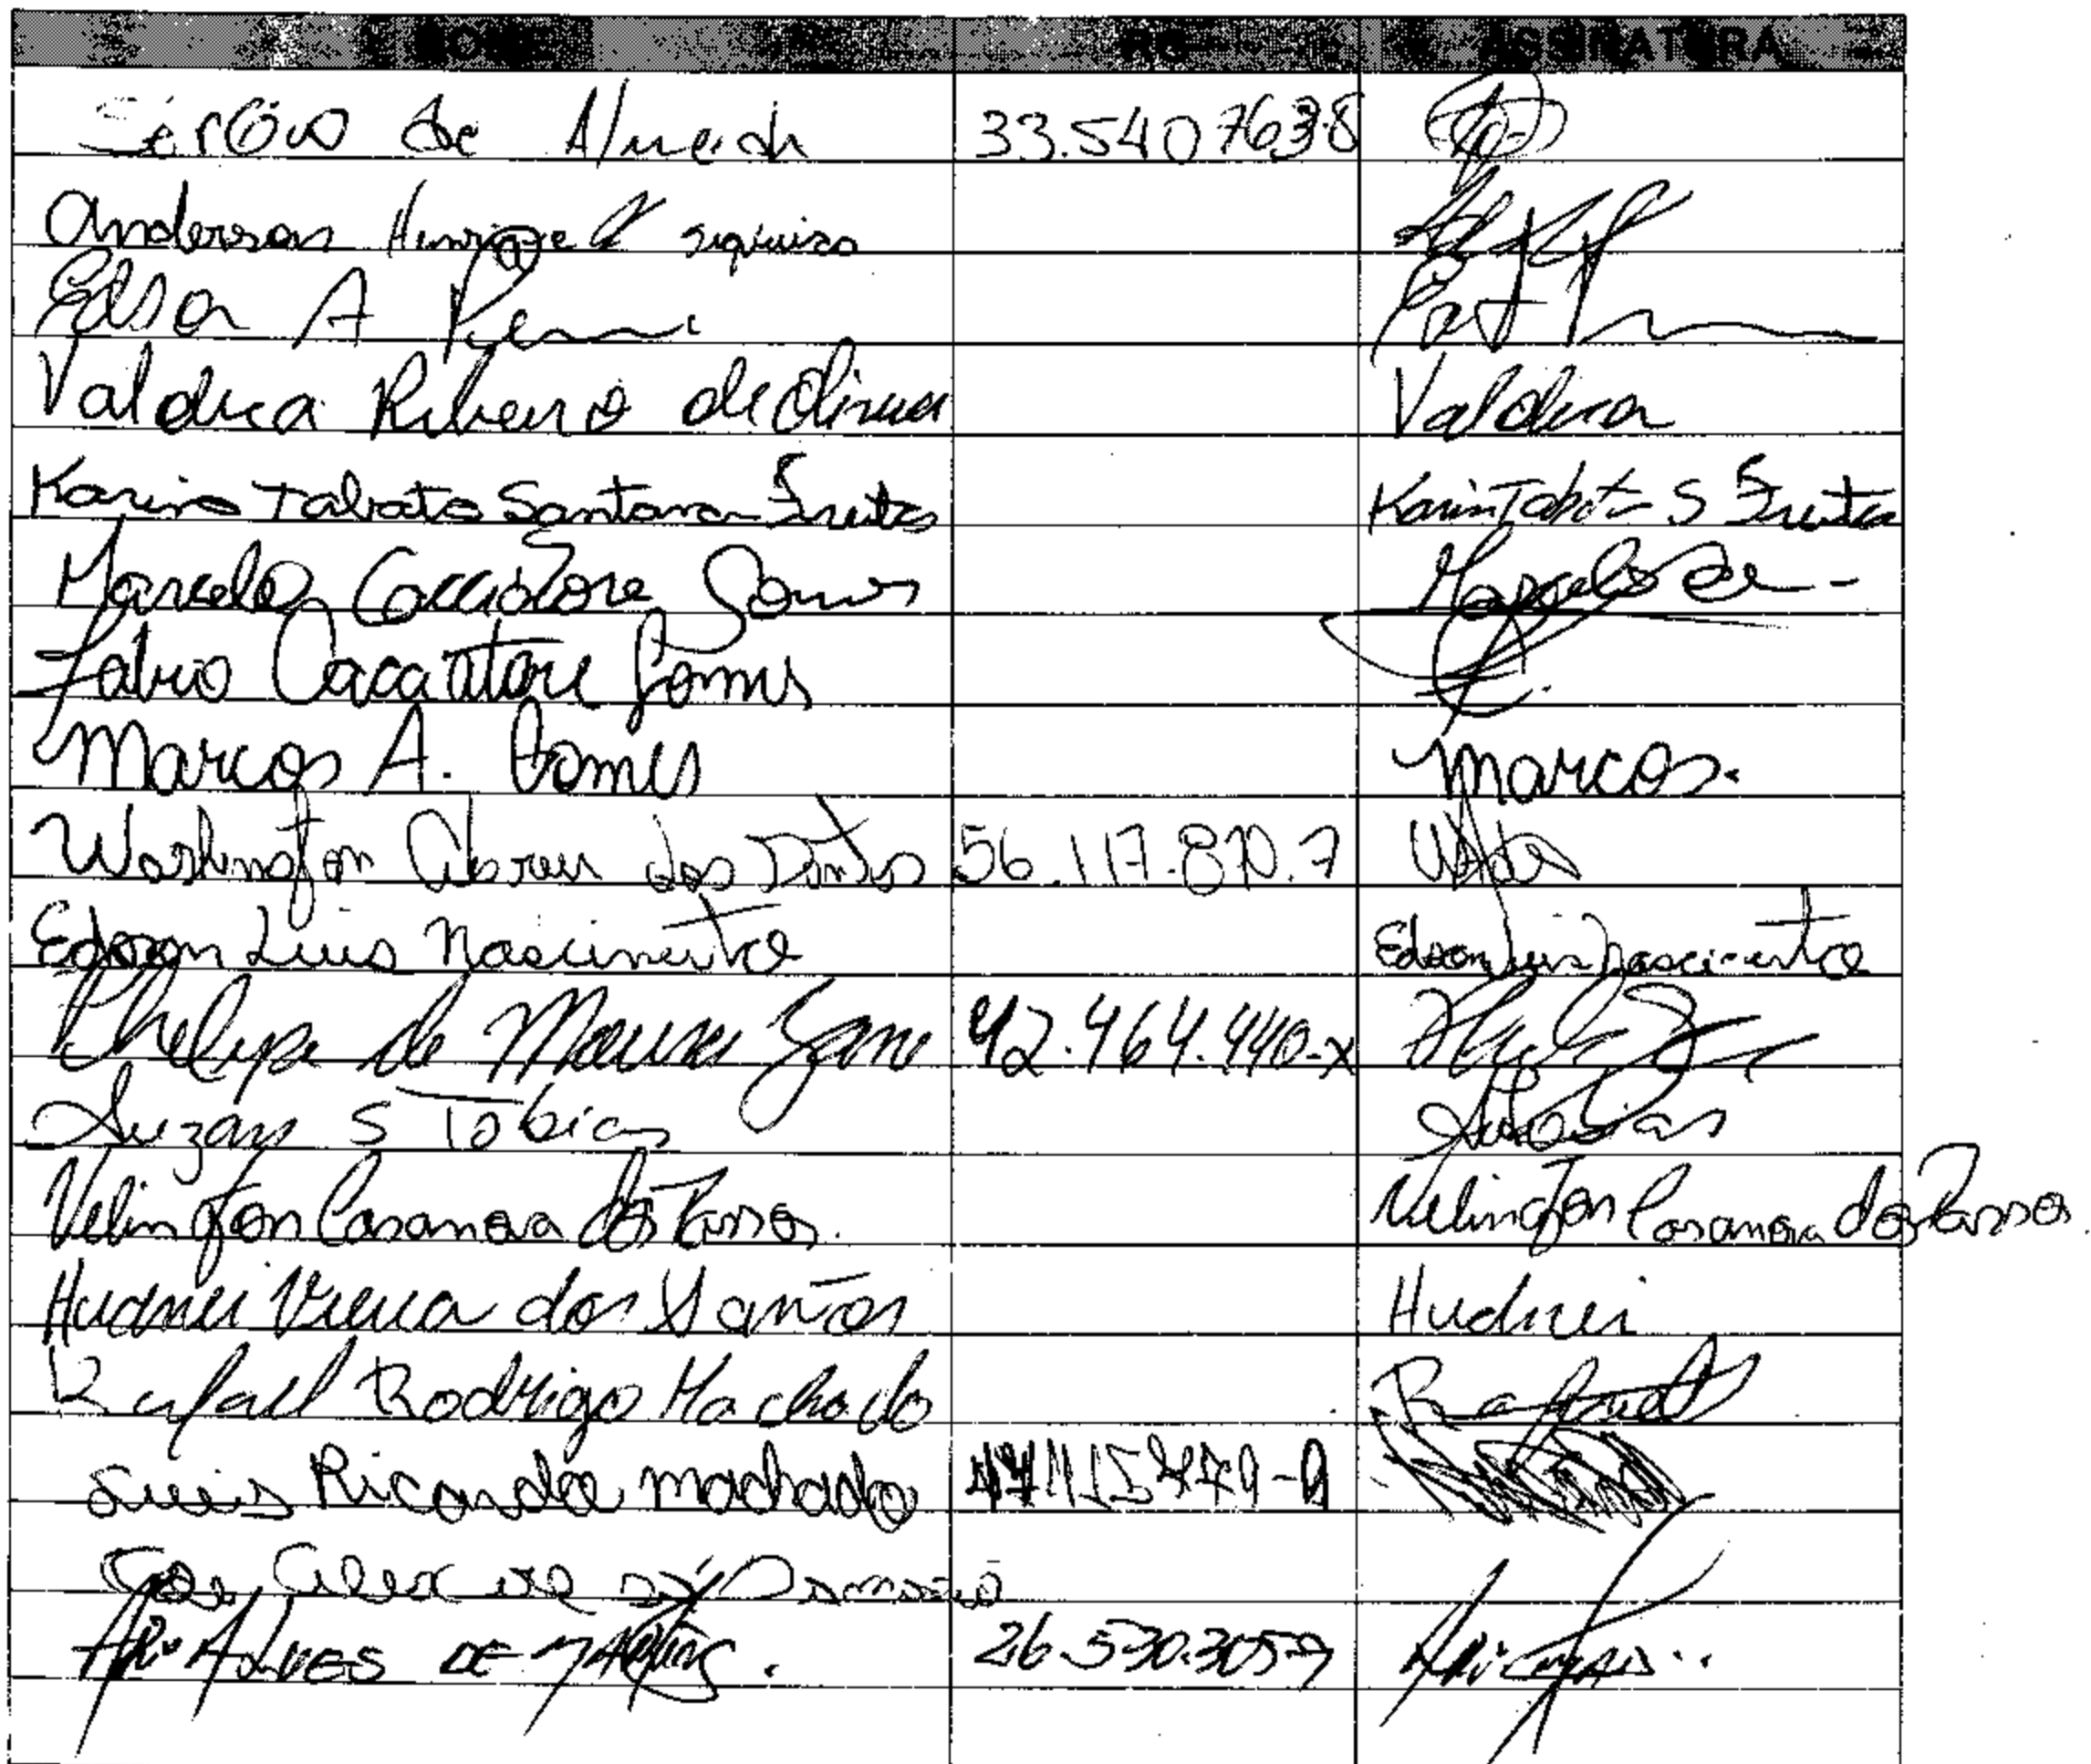 NOME RG ASSINATURA
de Almeida 33.540763-8
Anderson Henrique siqueira
Edson A
Valdeca Ribeiro de Oliveira Valdeca
Karina Tabata Santana Freitas Karina Tabata S Freitas
Marcelo Caccatore Gomes Marcelo
Fabio Cacattore Gomes
Marcos A. Gomes Marcos.
Washington Abreu dos Santos 56.117.870.7
Edson Luis Nascimento Edson Luis Nascimento
Phelipe de Moura 42.464.440-x
Suzany S Tobias
Velington Casanova dos Passos. Velington Casanova dos Passos.
Hudnei Vieira dos Santos Hudnei
Rafael Rodrigo Machado Rafael
Luis Ricardo machado
Alves DE 26.530.305-9